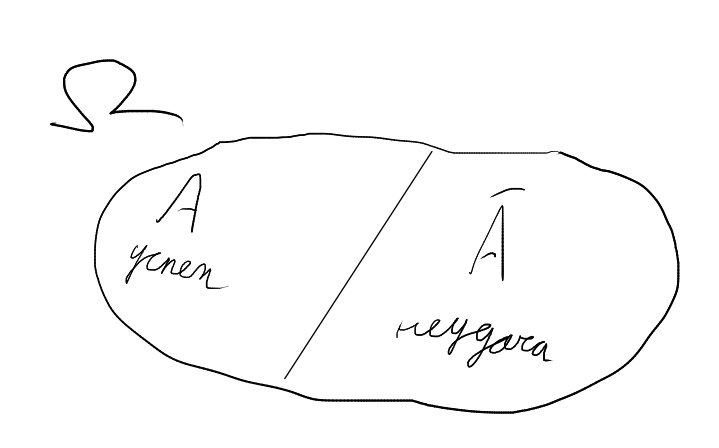 Ω
A
успех
Ā
неудача